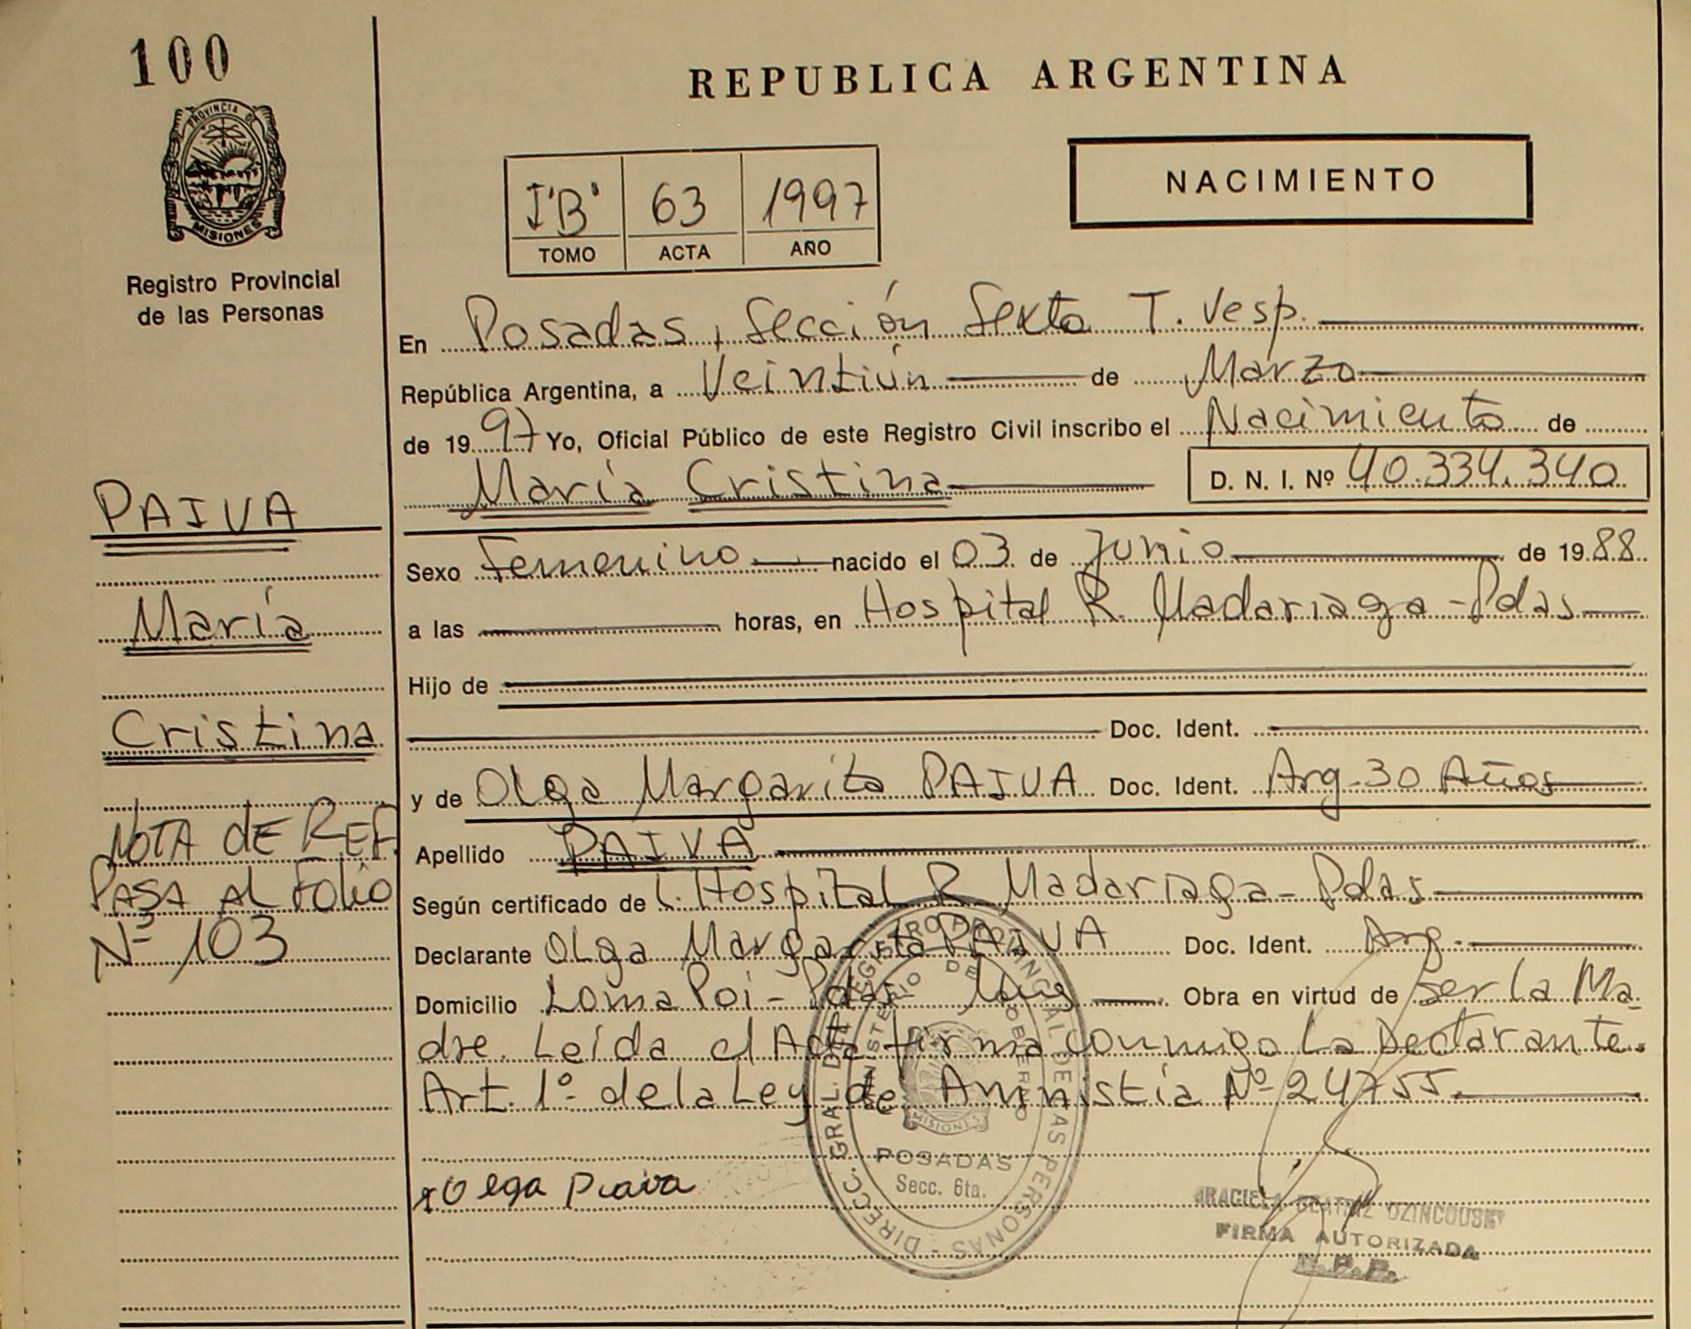 100
REPUBLICA ARGENTINA
PROVINCIA DE
MISIONES
Registro Provincial
de las Personas
I "B" 63 1997
TOMO ACTA AÑO
NACIMIENTO
En Posadas, Sección Sexta T. Vesp.
República Argentina, a Veintiún de Marzo
de 1997 Yo, Oficial Público de este Registro Civil inscribo el Nacimiento de
María Cristina D. N. I. Nº 40.334.340
PAIVA
María
Cristina
Sexo Femenino nacido el 03 de Junio de 1988
a las horas, en Hospital R. Madariaga - Pdas
Hijo de
Doc. Ident.
y de Olga Margarita PAIVA Doc. Ident. Arg - 30 Años
Apellido PAIVA
NOTA de REF.
PASA AL Folio
Nº 103
Según certificado de Hospital R Madariaga - Pdas
Declarante Olga Margarita PAIVA Doc. Ident. Arg.
Domicilio Loma Poi - Pdas - Obra en virtud de ser la Ma-
dre. Leída el Acta firma conmigo La Declarante.
Art. 1º de la Ley de Amnistía Nº 24755
x Olga Paiva
DIRECC. GRAL. DEL REGISTRO PROVINCIAL DE LAS PERSONAS
MINISTERIO DE GOBIERNO
MISIONES
POSADAS
Secc. 6ta.
GRACIELA BEATRIZ
FIRMA AUTORIZADA